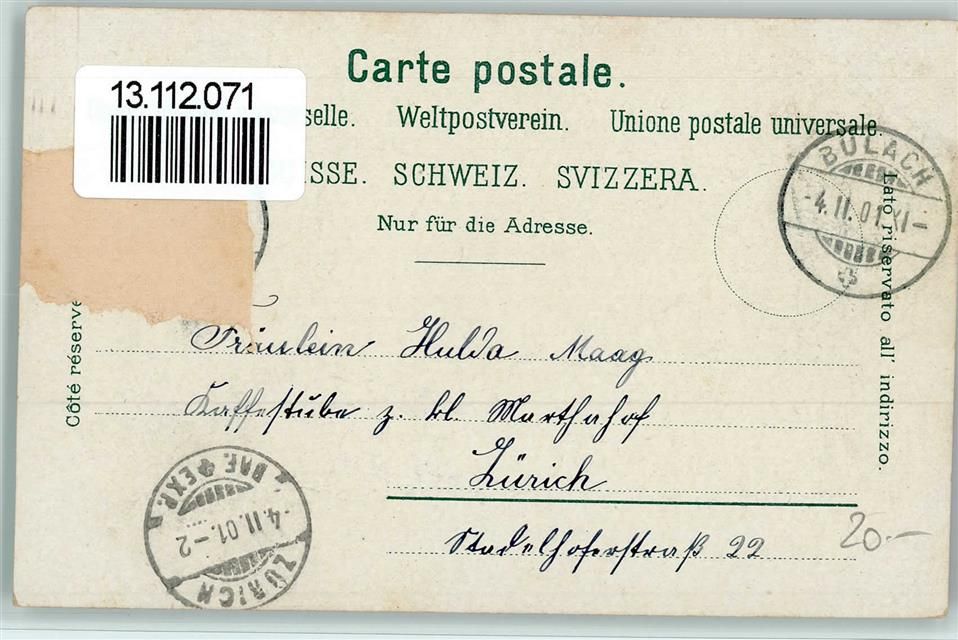 Carte postale.
13.112.071
selle. Weltpostverein. Unione postale universale.
ISSE. SCHWEIZ. SVIZZERA.
Nur für die Adresse.
BÜLACH
-4.II.01.XI-
Côté réserve
Lato riservato all' indirizzo.
Fräulein Hulda Maag
Kaffestube z. kl. Marthahof
Zürich
Stadelhoferstraß 22
20.-
ZÜRICH
-4.II.01.-2
BRF. EXP.